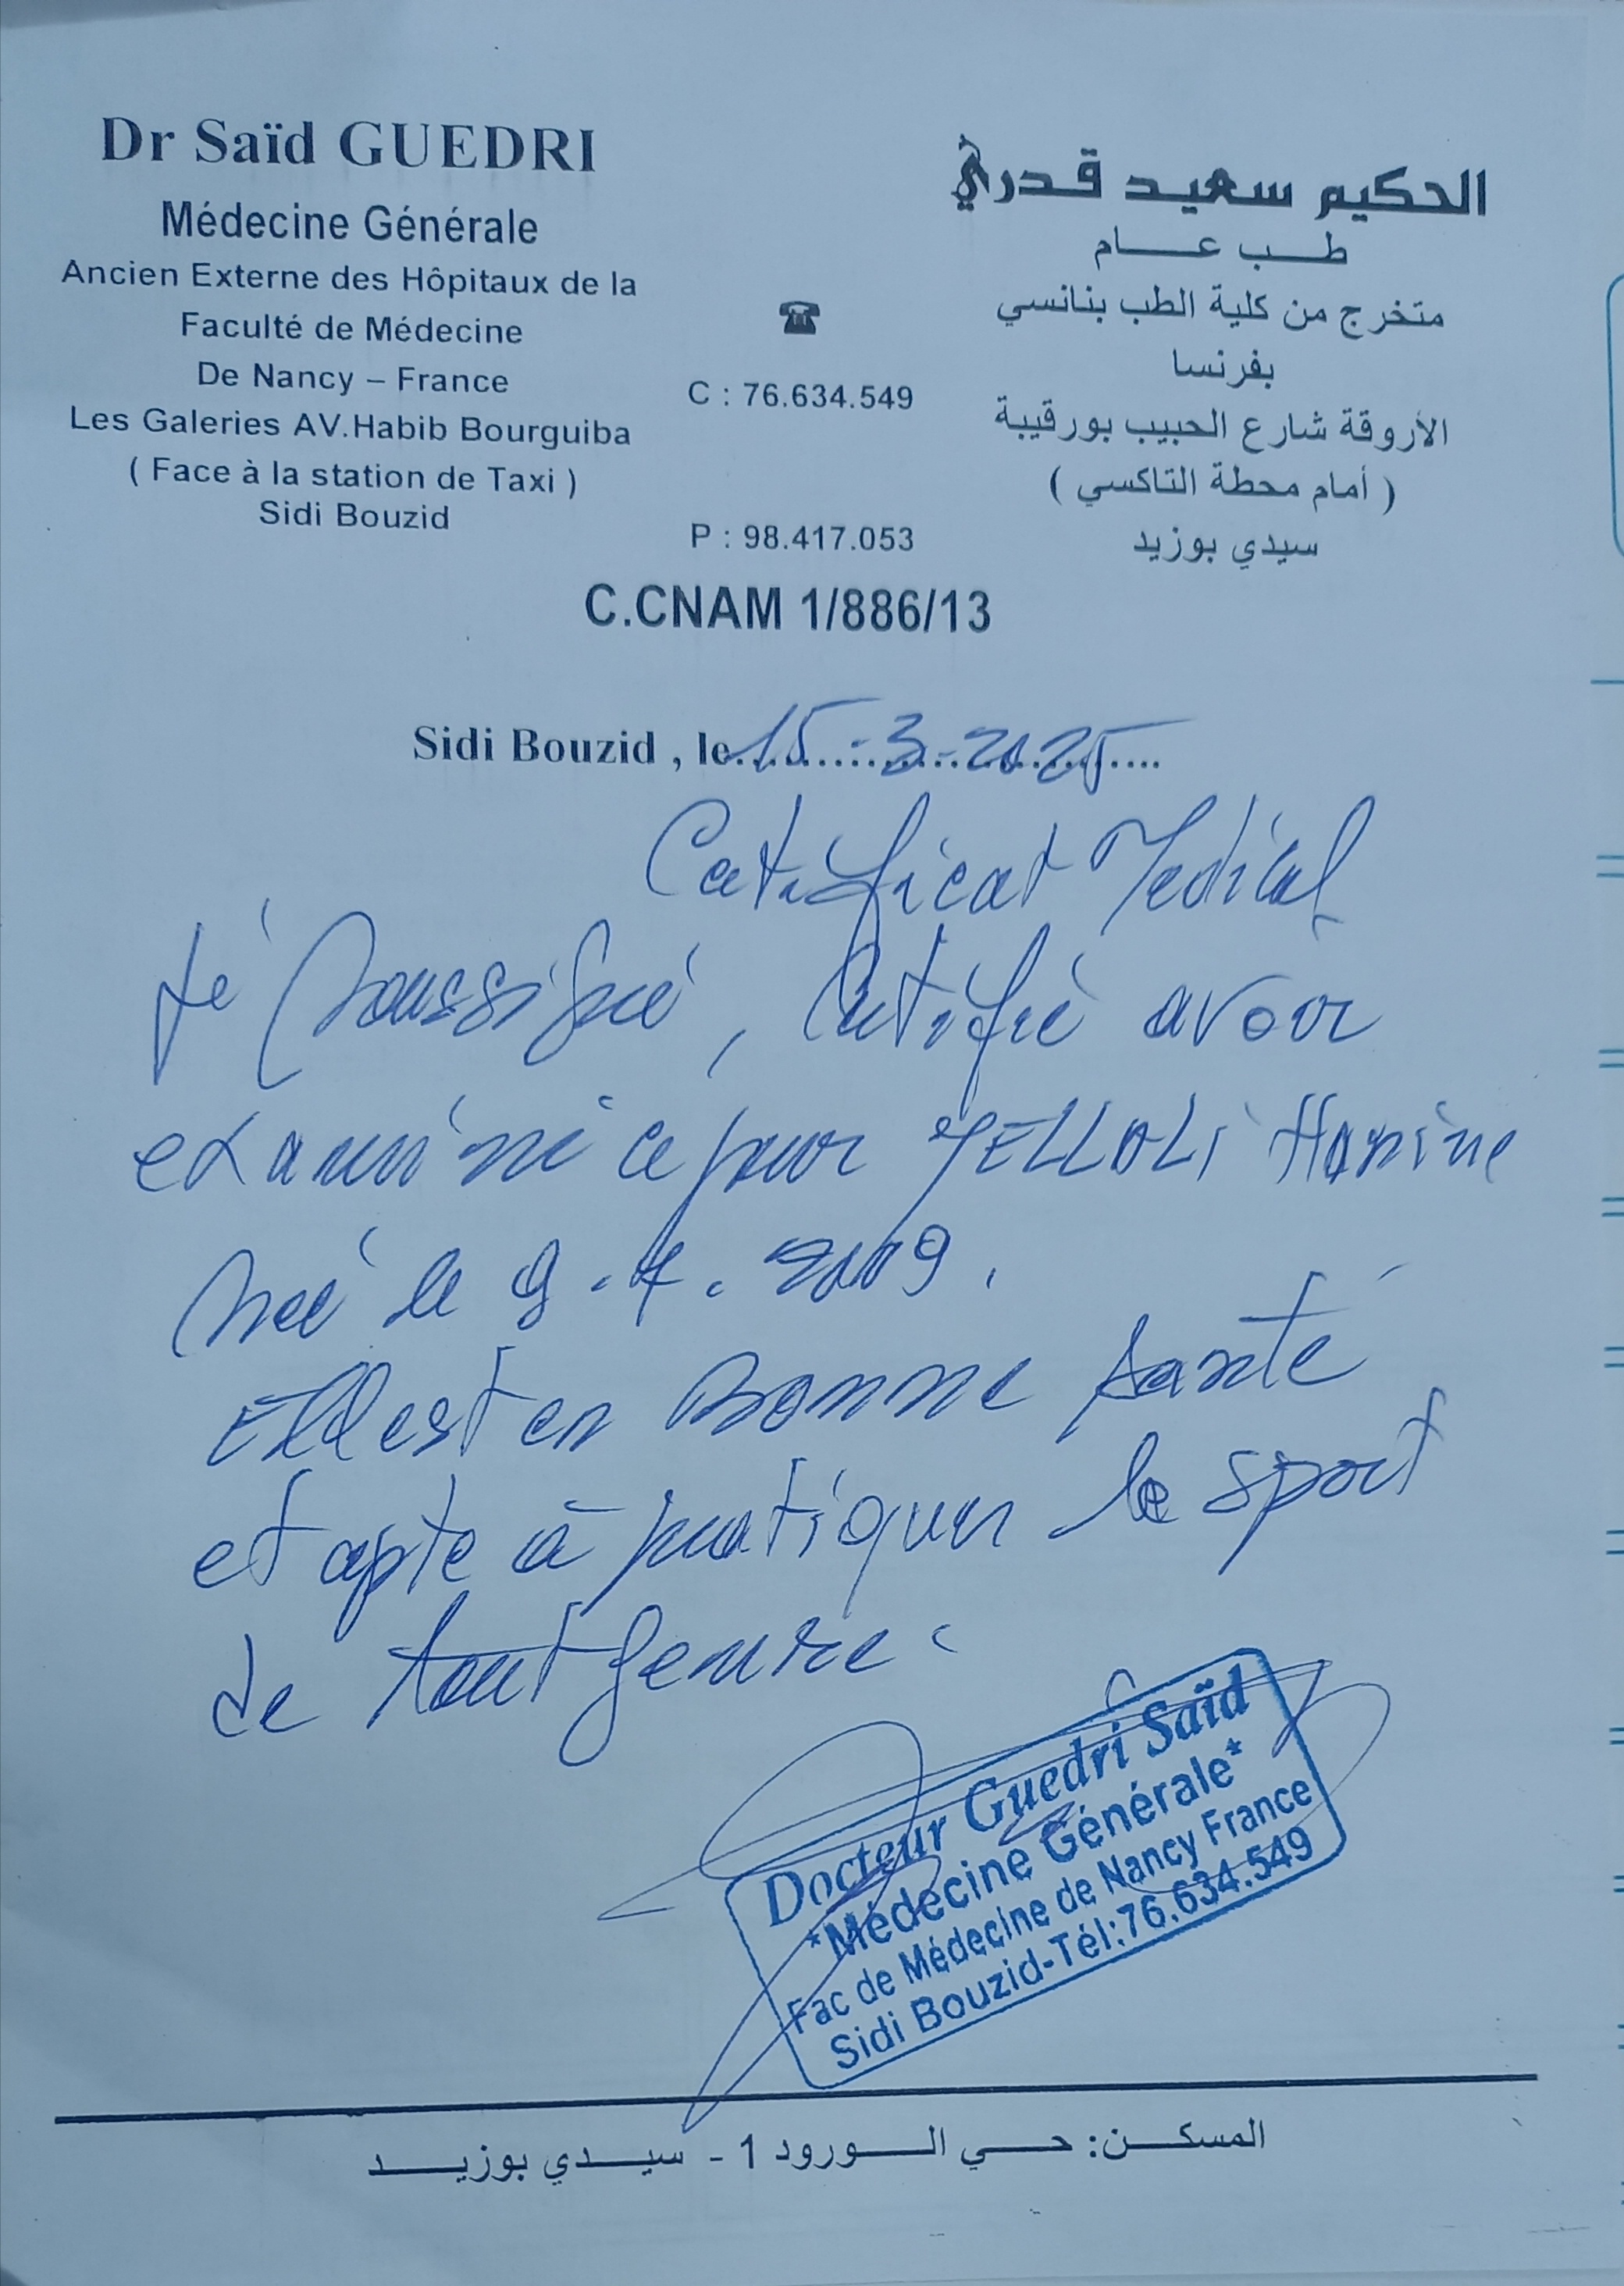 Dr Saïd GUEDRI
Médecine Générale
Ancien Externe des Hôpitaux de la
Faculté de Médecine
De Nancy – France
Les Galeries AV.Habib Bourguiba
( Face à la station de Taxi )
Sidi Bouzid
☎
C : 76.634.549
P : 98.417.053
الحكيم سعيد قدري
طب عام
متخرج من كلية الطب بنانسي
بفرنسا
الأروقة شارع الحبيب بورقيبة
( أمام محطة التاكسي )
سيدي بوزيد
C.CNAM 1/886/13
Sidi Bouzid , le 15-3-2025
Certificat Medical
Je soussigné, certifie avoir
examiné ce jour JELLALI Hanine
née le 9.7.2009.
Elle est en Bonne santé
et apte à pratiquer le sport
de tout genre.
Docteur Guedri Saïd
*Médecine Générale*
Fac de Médecine de Nancy France
Sidi Bouzid-Tél:76.634.549
المسكن: حي الورود 1 - سيدي بوزيد